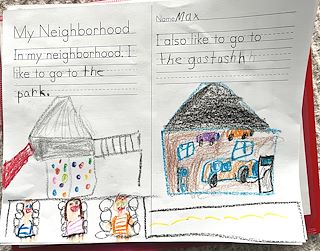 My Neighborhood
In my neighborhood, I
like to go to the
park.
Name Max
I also like to go to
the gastashh